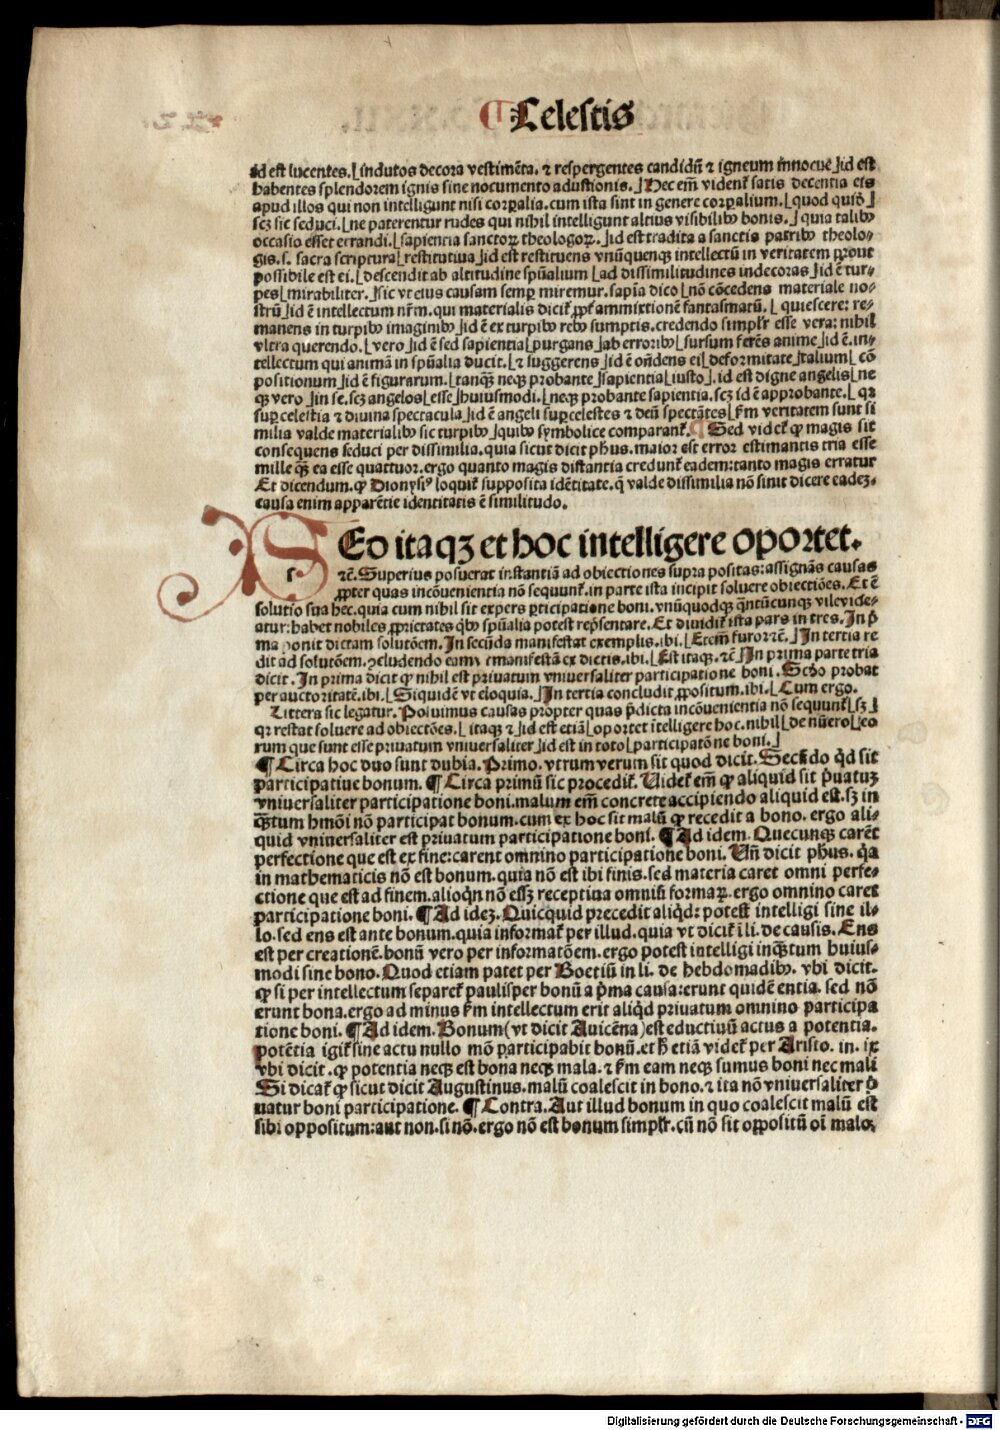 Celestis
id est lucentes.⌊indutos decora vestimēta. ⁊ respergentes candidū ⁊ igneum innocue⌋id est
habentes splendorem ignis sine nocumento adustionis.⌋Hec em̄ videnť satis decentia eis
apud illos qui non intelligunt nisi corꝑalia. cum ista sint in genere corꝑalium.⌊quod quidē⌋
scꝫ sic seduci.⌊ne paterentur rudes qui nihil intelligunt altius visibilibꝰ bonis.⌋quia talibꝰ
occasio esset errandi.⌊sapientia sanctoꝝ theologoꝝ.⌋id est tradita a sanctis patribꝰ theolo-
gis. s. sacra scriptura⌊restitutiua⌋id est restituens vnūquenqꝫ intellectū in veritatem ꝓout
possibile est ei.⌊descendit ab altitudine spūalium⌊ad dissimilitudines indecoras⌋id ē tur-
pes⌊mirabiliter.⌋sic vt eius causam semꝑ miremur. sapīa dico⌊nō cōcedens materiale no-
strū⌋id ē intellectum nr̄m. qui materialis diciť ꝓpť ammixtionē fantasmatū.⌊quiescere: re-
manens in turpibꝰ imaginibꝰ⌋id ē ex turpibꝰ rebꝰ sumptis. credendo simplr̄ esse vera: nihil
vltra querendo.⌊vero⌋id ē sed sapientia⌊purgans⌋ab erroribꝰ⌊sursum ferēs anime⌋id ē. in-
tellectum qui animā in spūalia ducit.⌊⁊ suggerens⌋id ē on̄dens ei⌊deformitate⌋talium⌊cō
positionum⌋id ē figurarum.⌊tanqꝫ̄ neqꝫ probante⌋sapientia⌊iusto⌋. id est digne angelis⌊ne
qꝫ vero⌋in se. scꝫ angelos⌊esse⌋huiusmodi.⌊neqꝫ probante sapientia. scꝫ id ē approbante.⌊qꝛ
suꝑcelestia ⁊ diuina spectacula⌋id ē angeli suꝑcelestes ⁊ deū spectātes⌊ẜm veritatem sunt si
milia valde materialibꝰ sic turpibꝰ⌋quibꝰ symbolice comparanť. ¶ Sed videť ꝙ magis sit
consequens seduci per dissimilia. quia sicut dicit phus. maior est error estimantis tria esse
mille qꝫ̄ ea esse quattuor. ergo quanto magis distantia credunť eadem: tanto magis erratur
Et dicendum. ꝙ Dionysiꝰ loquiť supposita idētitate. q̄ valde dissimilia nō sinit dicere eadeꝫ.
causa enim apparētie identitatis ē similitudo.
SEd itaqꝫ et hoc intelligere oportet.
⁊c̄. Superius posuerat instantiā ad obiectiones supra positas: assignās causas
ꝓpter quas incōuenientia nō sequunť. in parte ista incipit soluere obiectiōes. Et ē
solutio sua hec. quia cum nihil sit expers ꝑticipatione boni. vnūquodqꝫ qn̄tūcunqꝫ vile vide-
atur: habet nobiles ꝓprietates qbꝰ spūalia potest rep̄sentare. Et diuidiť ista pars in tres. In p̄
ma ponit dictam solutōem. In secūda manifestat exemplis. ibi.⌊Etem̄ furor ⁊c̄.⌋In tertia re
dit ad solutōem. ꝯcludendo eam manifestā ex dictis. ibi.⌊Est itaqꝫ. ⁊c̄⌋In prima parte tria
dicit. In prima dicit ꝙ nihil est priuatum vniuersaliter participatione boni. Scḋo probat
per auctoritatē. ibi.⌊Siquidē vt eloquia.⌋In tertia concludit ꝓpositum. ibi.⌊Cum ergo.
Littera sic legatur. Posuimus causas propter quas p̄dicta incōuenientia nō sequunť⌊sꝫ⌋
qꝛ restat soluere ad obiectōes.⌊itaqꝫ ⁊⌋id est etiā⌊oportet īntelligere hoc. nihil⌊de nūero⌊eo
rum que sunt esse priuatum vniuersaliter⌋id est in toto⌊participatōne boni.⌋
¶ Circa hoc duo sunt dubia. Primo. vtrum verum sit quod dicit. Secūdo qd̄ sit
participatiue bonum. ¶ Circa primū sic procediť. Videť em̄ ꝙ aliquid sit p̄uatuꝫ
vniuersaliter participatione boni. malum em̄ concrete accipiendo aliquid est. sꝫ in
qꝫ̄tum hmōi nō participat bonum. cum ex hoc sit malū ꝙ recedit a bono. ergo ali-
quid vniuersaliter est priuatum participatione boni. ¶ Ad idem. Quecunqꝫ carēt
perfectione que est ex fine: carent omnino participatione boni. Vn̄ dicit phus. q̄a
in mathematicis nō est bonum. quia nō est ibi finis. sed materia caret omni perfe-
ctione que est ad finem. alioqn̄ nō essꝫ receptiua omniū formaꝝ. ergo omnino caret
participatione boni. ¶ Ad ideꝫ. Quicquid precedit aliqd̄: potest intelligi sine il-
lo. sed ens est ante bonum. quia informať per illud. quia vt diciť ī li. de causis. Ens
est per creationē. bonū vero per informatōem. ergo potest intelligi inqꝫ̄tum huius-
modi sine bono. Quod etiam patet per Boetiū in li. de hebdomadibꝰ. vbi dicit.
ꝙ si per intellectum separeť paulisper bonū a p̄ma causa: erunt quidē entia. sed nō
erunt bona. ergo ad minus ẜm intellectum erit aliqd̄ priuatum omnino participa
tione boni. ¶ Ad idem. Bonum (vt dicit Auicēna) est eductiuū actus a potentia.
potētia igiť sine actu nullo mō participabit bonū. et h̄ etiā videť per Aristo. in. ix
vbi dicit. ꝙ potentia neqꝫ est bona neqꝫ mala. ⁊ ẜm eam neqꝫ sumus boni nec mali
Si dicať ꝙ sicut dicit Augustinus. malū coalescit in bono. ⁊ ita nō vniuersaliter p̄
uatur boni participatione. ¶ Contra. Aut illud bonum in quo coalescit malū est
sibi oppositum: aut non. si nō. ergo nō est bonum simplr̄. cū nō sit oppositū oī malo,
Digitalisierung gefördert durch die Deutsche Forschungsgemeinschaft - DFG